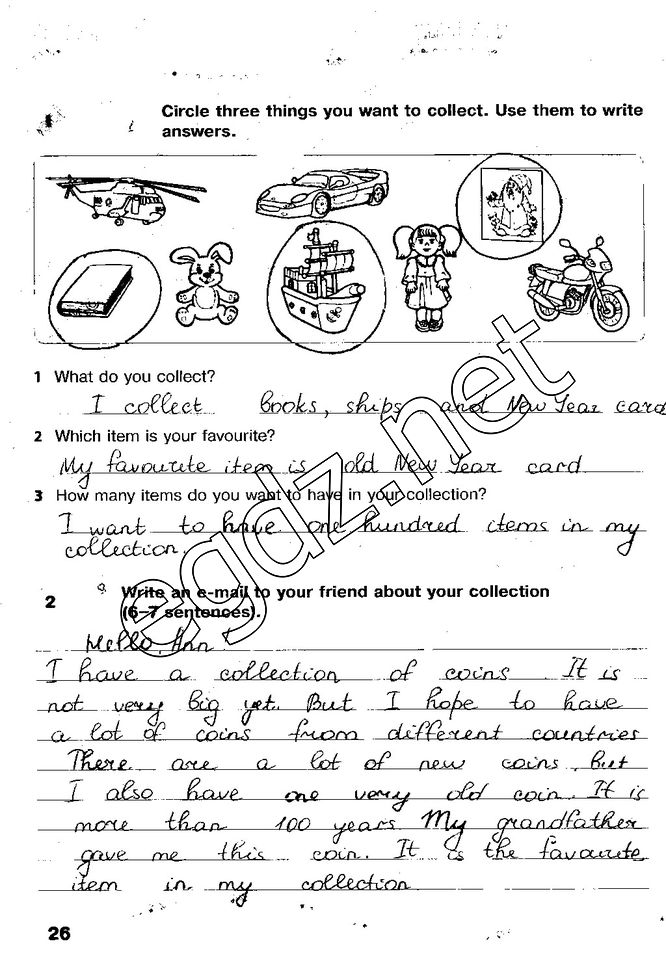 Circle three things you want to collect. Use them to write
answers.
1 What do you collect?
I collect books, ships and New Year card
2 Which item is your favourite?
My favourite item is old New Year card
3 How many items do you want to have in your collection?
I want to have one hundred items in my
collection.
2 Write an e-mail to your friend about your collection
(6–7 sentences).
Hello, Ann!
I have a collection of coins. It is
not very big yet. But I hope to have
a lot of coins from different countries
There are a lot of new coins, but
I also have one very old coin. It is
more than 100 years. My grandfather
gave me this coin. It is the favourite
item in my collection
26
egdz.net